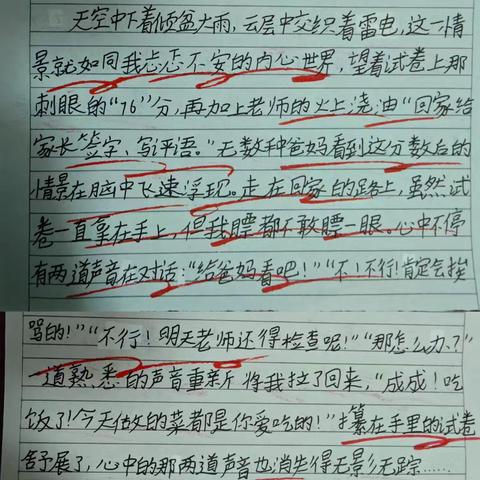 天空中下着倾盆大雨，云层中交织着雷电，这一情
景就如同我忐忑不安的内心世界，望着试卷上那
刺眼的“76”分，再加上老师的火上浇油“回家给
家长签字、写评语。”无数种爸妈看到这分数后的
情景在脑中飞速浮现。走在回家的路上，虽然试
卷一直拿在手上，但我瞟都不敢瞟一眼。心中不停
有两道声音在对话：“给爸妈看吧！”“不！不行！肯定会挨
骂的！”“不行！明天老师还得检查呢！”“那怎么办？”
一道熟悉的声音重新将我拉了回来，“成成！吃
饭了！今天做的菜都是你爱吃的！”攥在手里的试卷
舒展了，心中的那两道声音也消失得无影无踪……